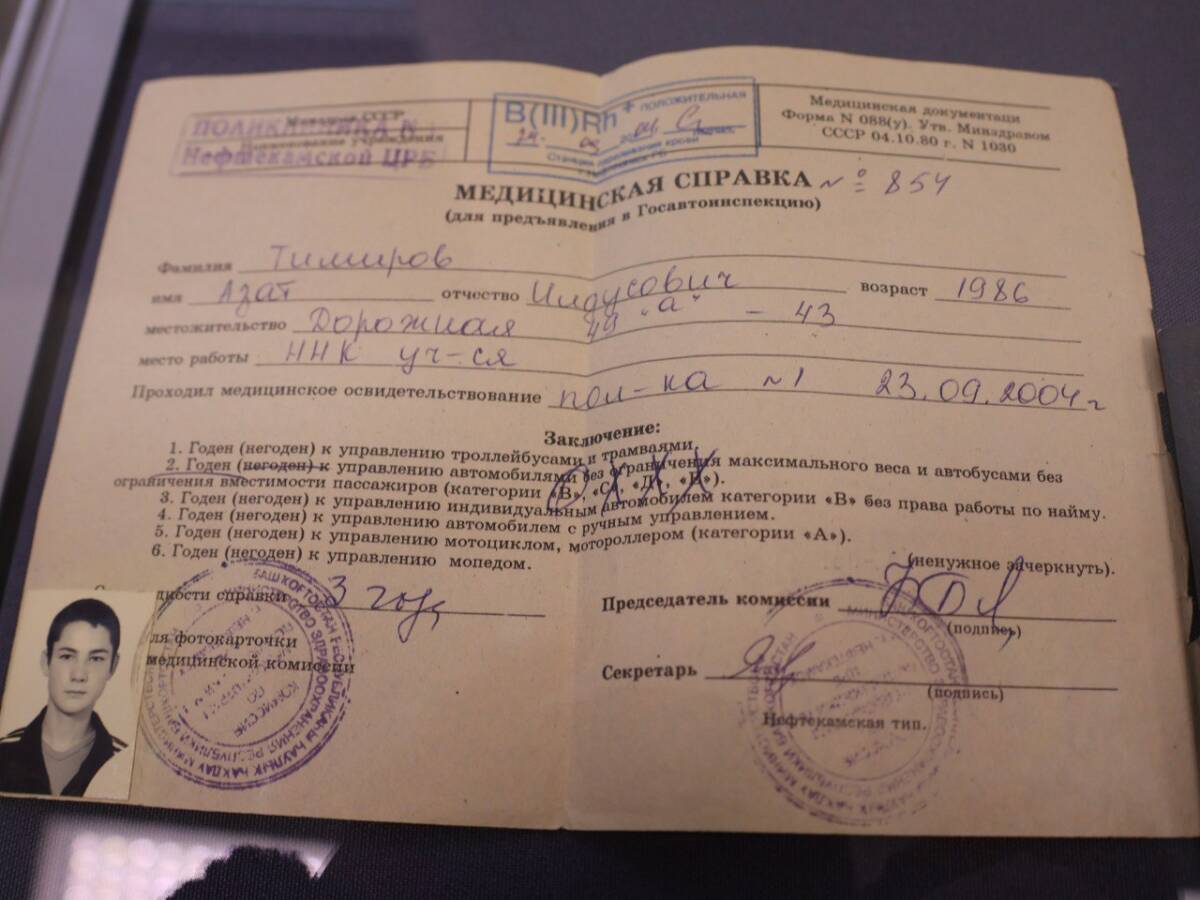 Минздрав СССР
ПОЛИКЛИНИКА N
Наименование учреждения
Нефтекамской ЦРБ
B(III)Rh+ ПОЛОЖИТЕЛЬНАЯ
Станция переливания крови
Медицинская документаци
Форма N 088(у). Утв. Минздравом
СССР 04.10.80 г. N 1030
МЕДИЦИНСКАЯ СПРАВКА № 854
(для предъявления в Госавтоинспекцию)
Фамилия Тимиров
имя Азат отчество Илдусович возраст 1986
местожительство Дорожная 49 "а" - 43
место работы ННК уч-ся
Проходил медицинское освидетельствование пол-ка N1 23.09.2004 г
Заключение:
1. Годен (негоден) к управлению троллейбусами и трамваями.
2. Годен (негоден) к управлению автомобилями без ограничения максимального веса и автобусами без
ограничения вместимости пассажиров (категории «В», «С», «Д», «Е»).
3. Годен (негоден) к управлению индивидуальным автомобилем категории «В» без права работы по найму.
4. Годен (негоден) к управлению автомобилем с ручным управлением.
5. Годен (негоден) к управлению мотоциклом, мотороллером (категории «А»).
6. Годен (негоден) к управлению мопедом.
(ненужное зачеркнуть).
дности справки 3 года
Председатель комиссии
(подпись)
ля фотокарточки
медицинской комиссии
Секретарь
(подпись)
Нефтекамская тип.